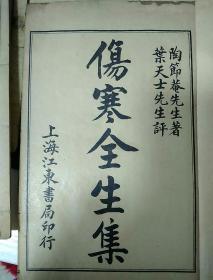 陶節菴先生著
葉天士先生評
傷寒全生集
上海江東書局印行